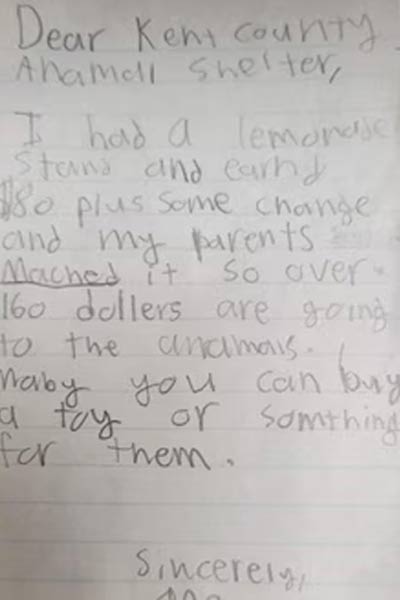 Dear Kent county
Anamall Shelter,
I had a lemonade
Stand and earnd
$80 plus some change
and my parents
Mached it so over
160 dollers are going
to the anamals.
maby you can buy
a toy or somthing
for them.
Sincerely,